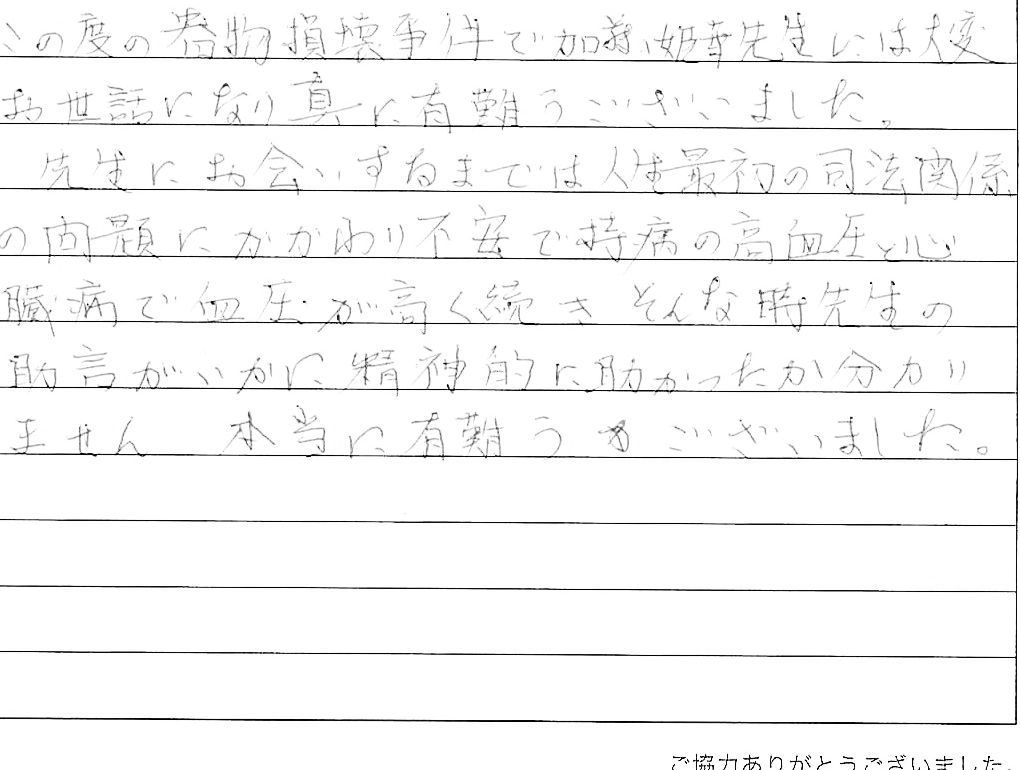 この度の器物損壊事件で加藤姫華先生には大変
お世話になり真に有難うございました。
先生にお会いするまでは人生最初の司法関係
の問題にかかわり不安で持病の高血圧と心
臓病で血圧が高く続きそんな時先生の
助言がいかに精神的に助かったか分かり
ません 本当に有難うございました。
ご協力ありがとうございました。